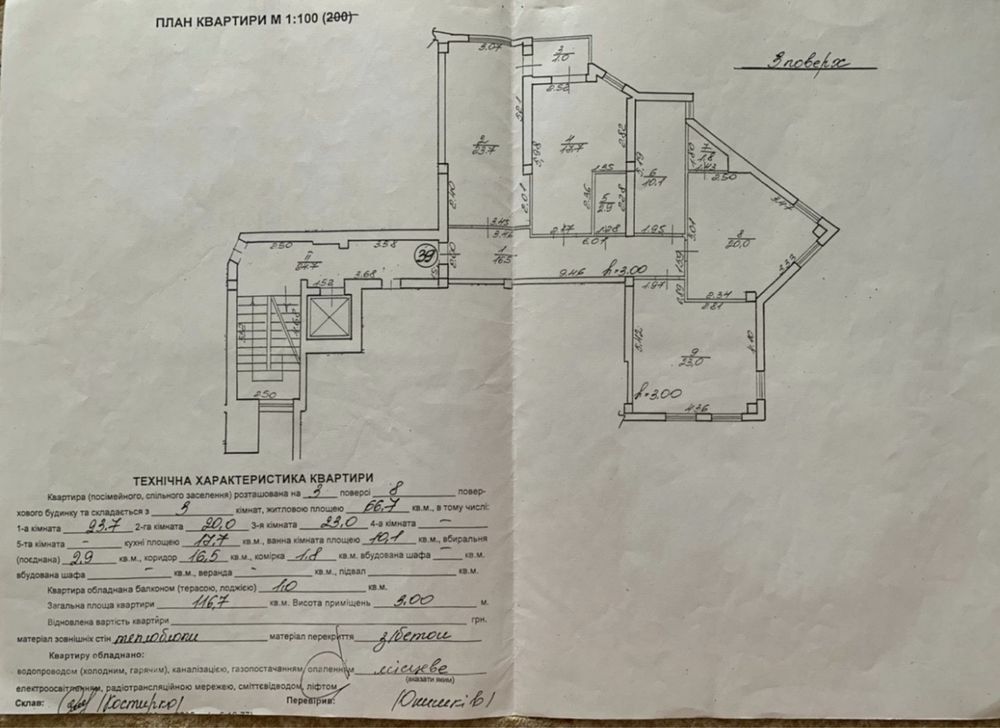 ПЛАН КВАРТИРИ М 1:100 (200)
3 поверх
3.07
3
1.0
2.52
5.21
2
23.7
5.98
4
17.7
2.82
1.35
5.19
6
10.1
1.80
7
1.8
1.43
2.50
3.47
2.40
2.01
2.36
5
2.9
2.28
3.45
3.16
2.87
1.28
6.07
1.95
3.01
8
20,0
2.50
3.58
39
1
16.5
II
1.52
3.68
9.46
h=3.00
1.91
1.59
2.34
2.81
3.33
5.42
9
23,0
4.10
h=3.00
4.36
2.50
ТЕХНІЧНА ХАРАКТЕРИСТИКА КВАРТИРИ
Квартира (посімейного, спільного заселення) розташована на 3 поверсі 8 повер-
хового будинку та складається з 3 кімнат, житловою площею 66,7 кв.м., в тому числі:
1-а кімната 23.7 2-га кімната 20,0 3-я кімната 23,0 4-а кімната –
5-та кімната – кухні площею 17,7 кв.м., ванна кімната площею 10,1 кв.м., вбиральня
(поєднана) 2,9 кв.м., коридор 16,5 кв.м., комірка 1,8 кв.м. вбудована шафа – кв.м.
вбудована шафа – кв.м., веранда – кв.м., підвал кв.м.
Квартира обладнана балконом (терасою, лоджією) 1.0 кв.м.
Загальна площа квартири 116,7 кв.м. Висота приміщень 3,00 м.
Відновлена вартість квартири грн.
матеріал зовнішніх стін теплоблоки матеріал перекриття з/бетон
Квартиру обладнано:
водопроводом (холодним, гарячим), каналізацією, газопостачанням, опаленням місцеве
(вказати яким)
електроосвітленням, радіотрансляційною мережею, сміттєвідводом, ліфтом
Склав: /Костирко/ Перевірив: